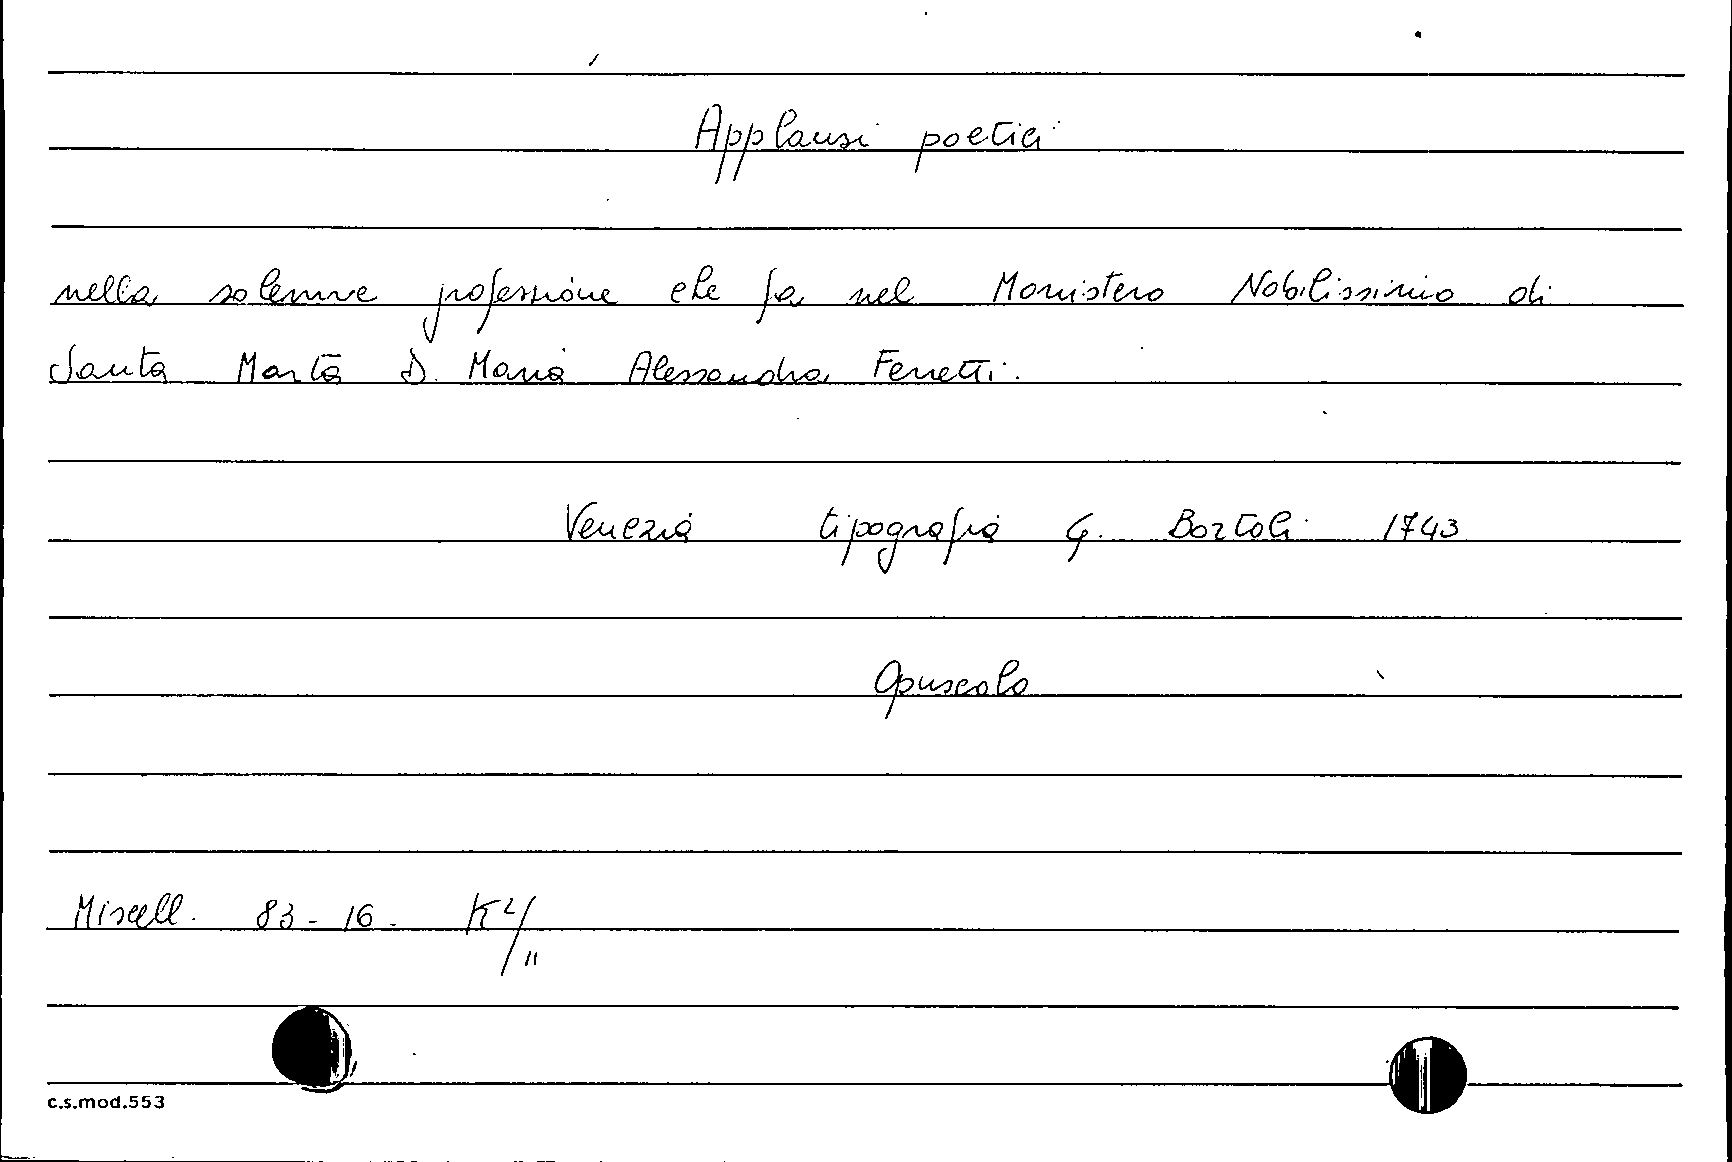 Applausi poetici
nella solenne professione che fa nel Monistero Nobilissimo di
Santa Marta D. Maria Alessandra Ferretti.
Venezia tipografia G. Bortoli 1743
Opuscolo
Miscell. 83-16- K4/
"
c.s.mod.553